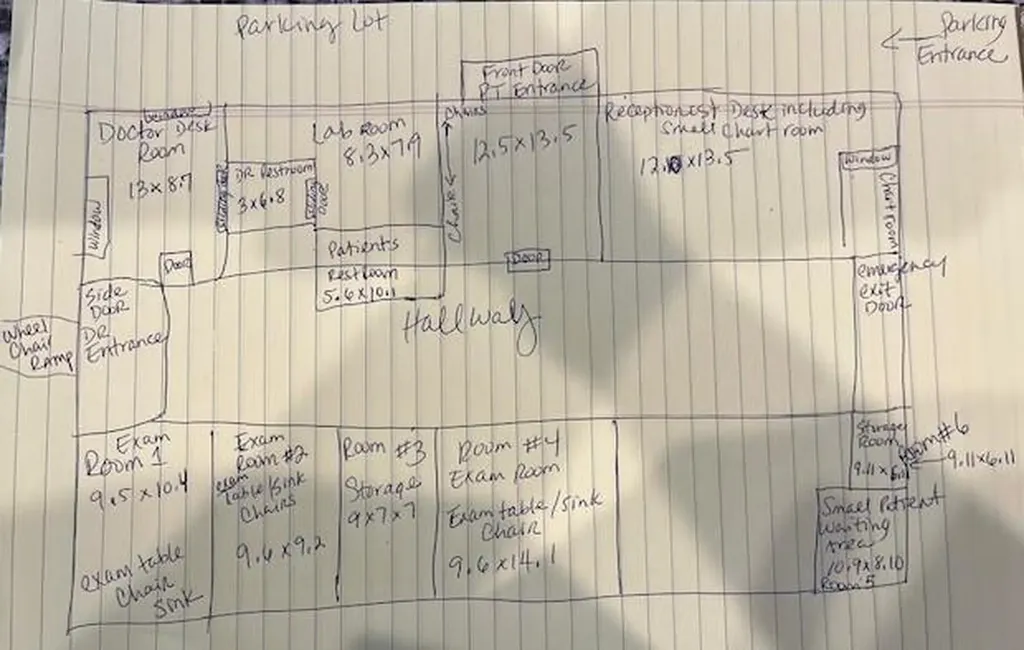 Parking Lot
← Parking
Entrance
Front Door
PT Entrance
Window
Doctor Desk
Room
13 x 8.7
Window
Door
DR Restroom
3 x 6.8
Sliding Door
Lab Room
8.3 x 7.9
Patients
Restroom
5.6 x 10.1
Chairs
Chairs
12.5 x 13.5
Door
Receptionist Desk including
Small Chart room
x 13.5
Window
Chart room
Side
Door
DR
Entrance
Wheel
Chair
Ramp
Hallway
emergency
exit
Door
Exam
Room 1
9.5 x 10.4
exam table
Chair
Sink
Exam
Room #2
exam
table/sink
Chairs
9.6 x 9.2
Room #3
Storage
9 x 7 x 7
Room #4
Exam Room
Exam table/sink
Chair
9.6 x 14.1
Storage
Room
9.11 x 6.11
Room #6
9.11 x 6.11
Small Patient
Waiting
Area
10.9 x 8.10
Room 5